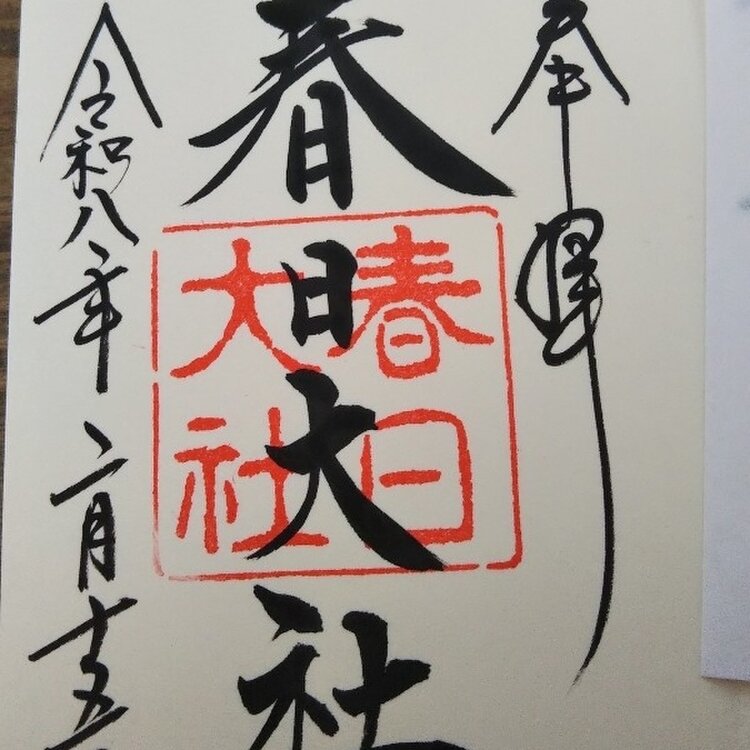 奉拝
春日大社
春日大社
令和八年二月十五日